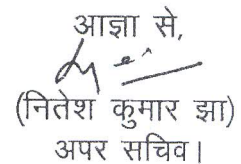 आज्ञा से,
(नितेश कुमार झा)
अपर सचिव।